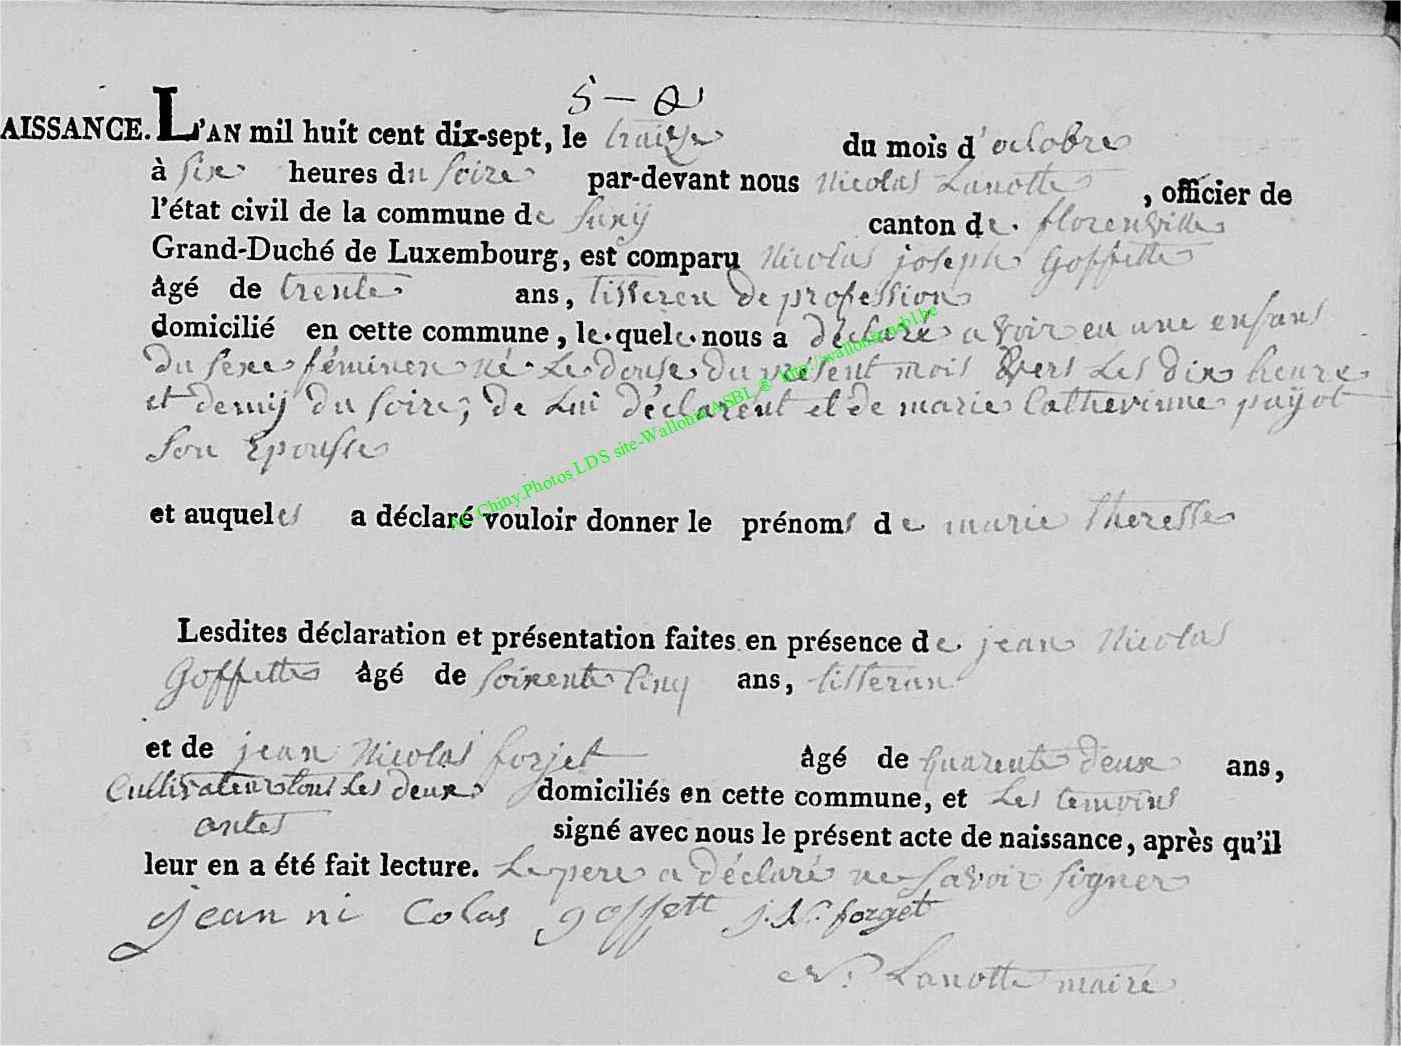 5 - 
AISSANCE. L'AN mil huit cent dix-sept, le traize du mois d'octobre
à six heures du soire par-devant nous Nicolas Lanotte, officier de
l'état civil de la commune de Suxÿ canton de florenville
Grand-Duché de Luxembourg, est comparu Nicolas joseph Goffette
âgé de trente ans, tisseren de profession
domicilié en cette commune, lequel nous a déclaré avoir eu une enfans
du sexe féminen né Le douse du présent mois vers Les dix heure
et demÿ du soire, de Lui déclarent et de marie Catherinne payot
Son Epousse
et auqueles a déclaré vouloir donner le prénoms de marie theresse
Lesdites déclaration et présentation faites en présence de jean Nicolas
Goffette âgé de soixente cinq ans, tisseran
et de jean Nicolas forjet âgé de quarente deux ans,
Cultivateur tous Les deux domiciliés en cette commune, et Les temoins
ontes signé avec nous le présent acte de naissance, après qu'il
leur en a été fait lecture. Le pere a déclaré ne savoir signer
jean ni Colas goffett j. N. forget
N. Lanotte maire
Chiny.Photos LDS site-Wallonia ASBL © http://wallonia-asbl.be